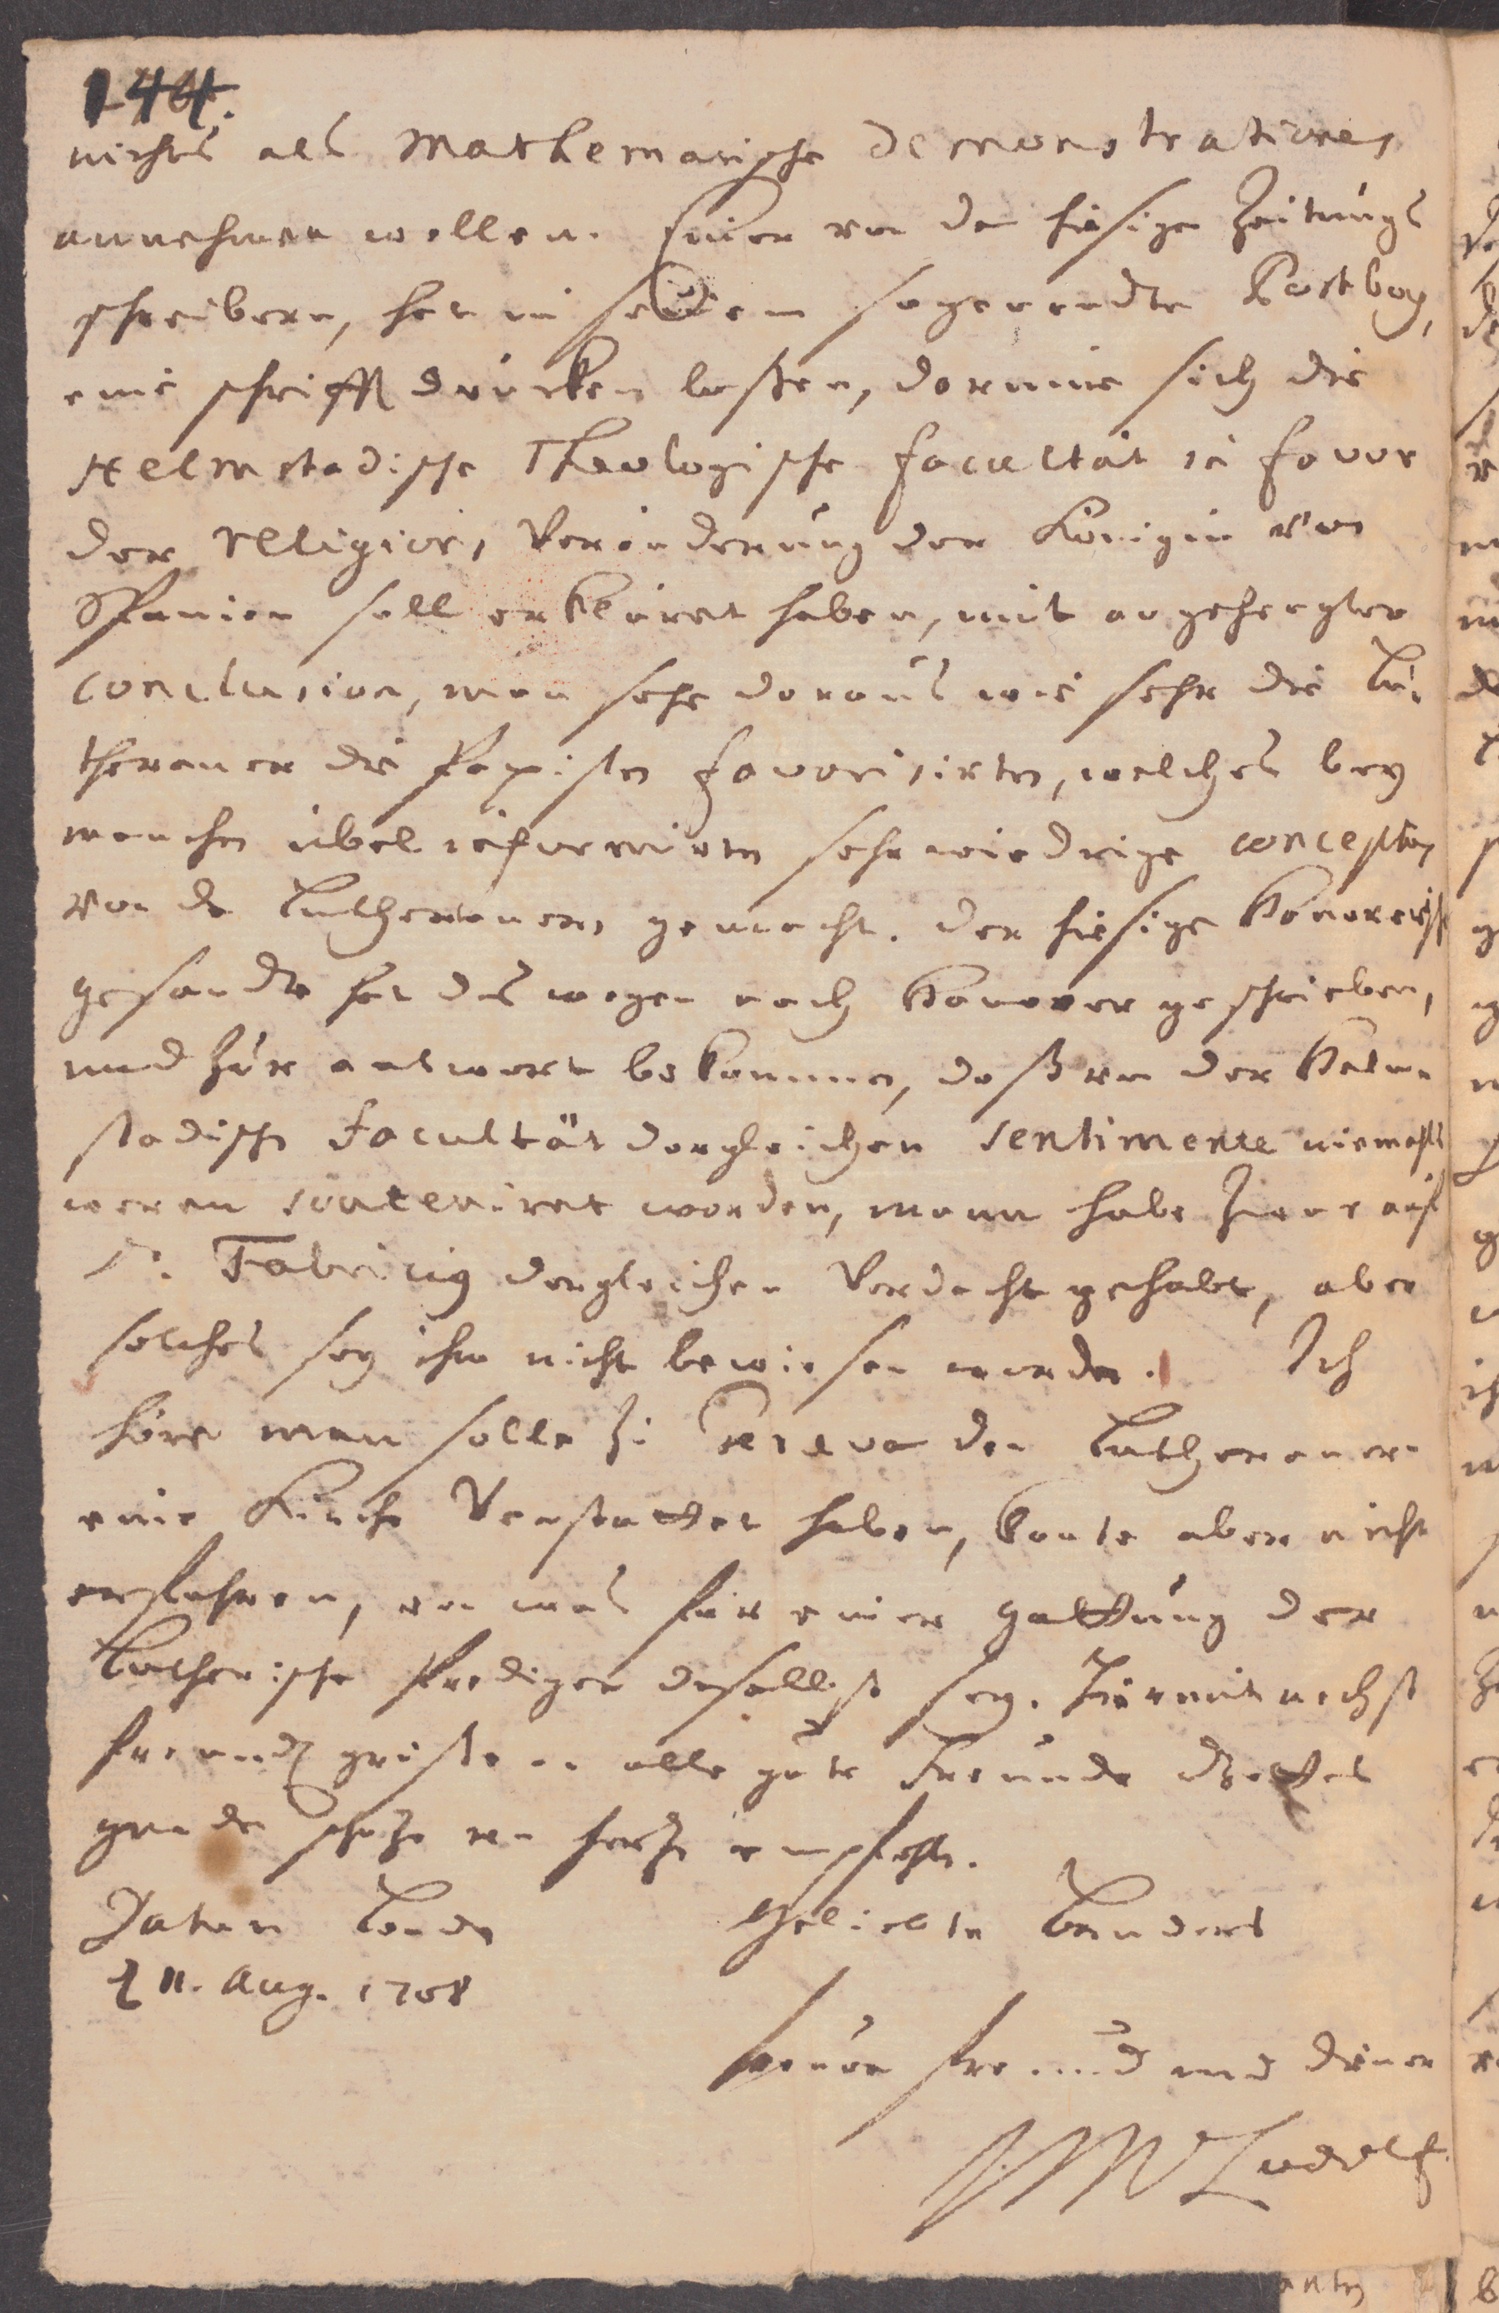 144.
nichts als Mathematische demonstrationes
annehmen wollen. Einer von den hiesigen Zeitungs
schreibern, hat in seinem sogenandten Postboy,
eine schrifft drucken laßen, dorinnen sich die
Helmstadische Theologische facultät in favor
der religions Veränderung der Königin von
Spanien soll erkläret haben, mit angehengter
conclusion, man sehe daraus wie sehr die Lu-
theraner die Papisten favorisirten, welches bey
manchen übel informirten sehr wiedrige concepten
von den Lutheranern gemacht. Der hiesige Hanoverisch
gesandte hat deswegen nach Hanover geschrieben,
und zur antwort bekommen, daß von der Helm-
stadischen Facultät dergleichen sentimente niemahls
weren souteniret worden, mann habe zwar auf
D. Fabricius dergleichen Verdacht gehabt, aber
solches sey ihm nicht bewiesen worden. Ich
höre man solle zu Geneva den Lutheranern
eine Kirche Verstattet haben, konte aber nicht
erfahren, von was für einer gattung der
Lutherische Prediger daselbst sey. Hiermit nechst
freundl. grüße an alle gute Freunde Gottes
gnaden schuze von herzen empfehle.
Datum Londen
d 11. Aug. 1708
Geliebte Bruders
treuer freund und diener
HWLudolf.